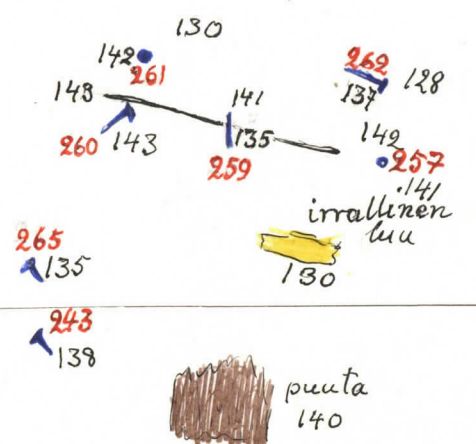 130
142
261
262
137
128
143
141
260
143
135
259
142
257
.141
irrallinen
luu
130
265
135
243
138
puuta
140